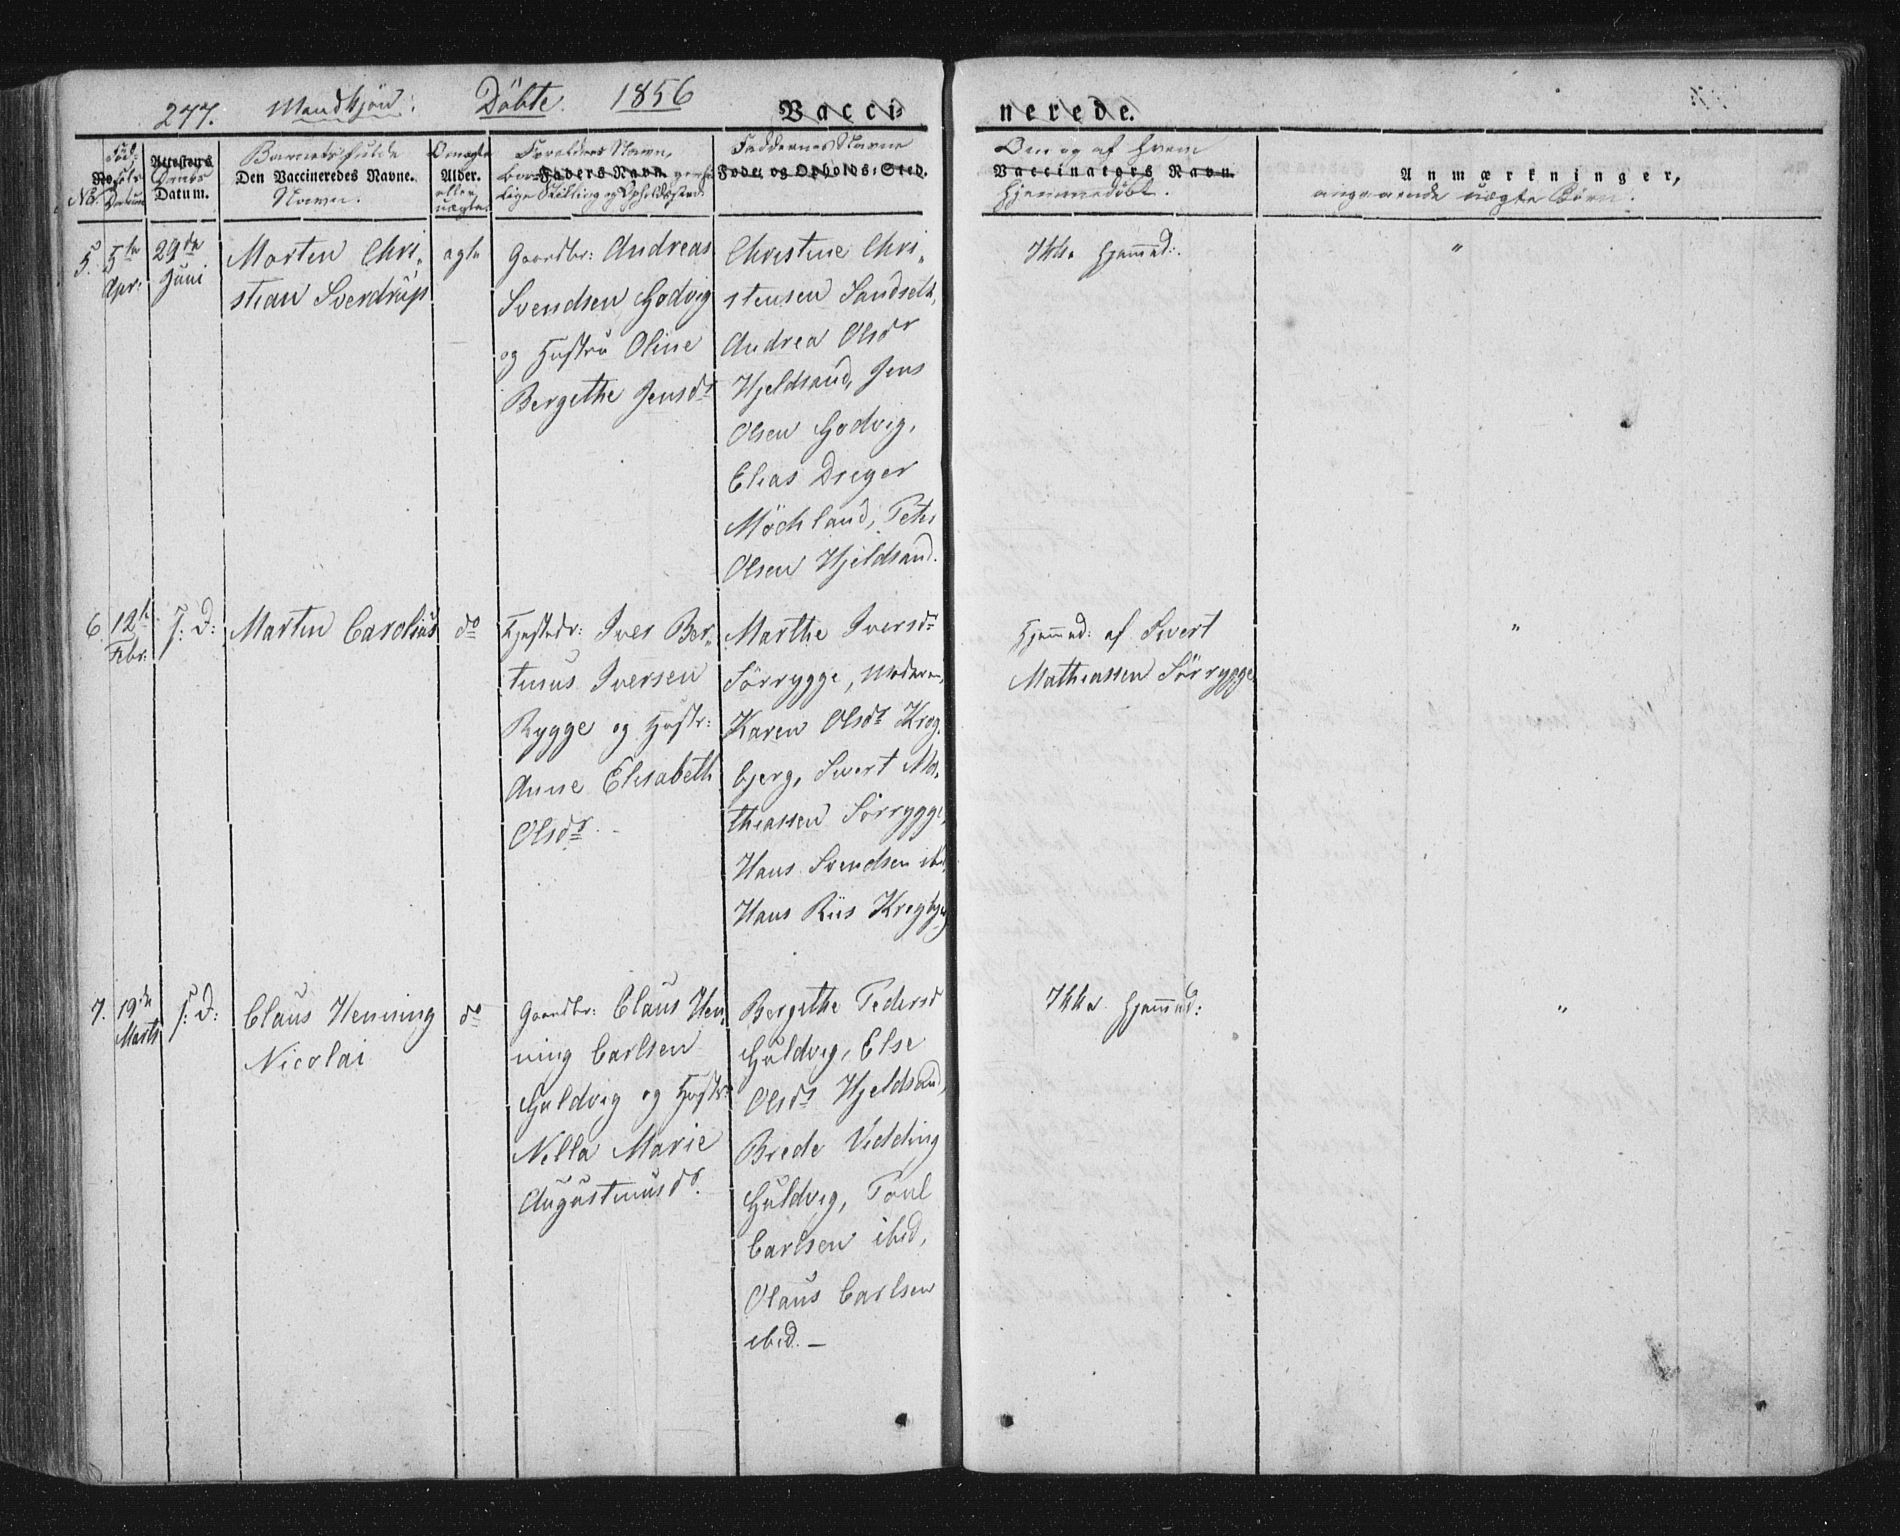 277. Mandkjön: Döbte. 1856 Vacci-
nerede.
No. Föd- Datum
Attestens Daabs Datum.
Barnets fulde Den Vaccineredes Navne. Navn.
Om ægte Alder. eller uægte
Forældres Navn, Faders Navn Stilling og Opholdssted.
Faddernes Navne Føde- og Opholds-Sted.
Om og af Hvem Vaccinators Navn. Hjemmedöbt.
Anmærkninger,
angaaende uægte Börn.
5. 5te Apr: 29de Juni
Morten Chri-
stian Sverdrup
ægte
Gaardbr: Andreas
Svendsen Godvig
og Hustru Oline
Bergithe Jensdt
Christine Chri-
stensen Sandseth,
Andrea Olsdr
Hjeldsand, Jens
Olsen Godvig,
Elias Dreyer
Möchland, Peter
Olsen Hjeldsand.
Ikke Hjemmed:
"
6 12te Febr: s: D:
Martin Carolius
do
Iver Ber-
tinus Iversen
Rygge og Hustr:
Anne Elisabeth
Olsdr.
Marthe Iversdr
Sörrygge, Moderen,
Karen Olsdt Krog-
bjerg, Sivert Ma-
thiassen Sörrygge,
Hans Svendsen ibid,
Hans Riis Krogbjerg
Hjemmed: af Sivert
Mathiassen Sörrygge
"
7. 19de Marts s: D:
Claus Henning
Nicolai
do
Gaardbr: Claus Hen-
ning Carlsen
Guldvig og Hustr:
Nella Marie
Augustinusdr.
Bergithe Pedersd
Guldvig, Else
Olsdt Hjeldsand,
Brede Vedding
Guldvig, Poul
Carlsen ibid,
Olaus Carlsen
ibid. —
Ikke Hjemmed:
"